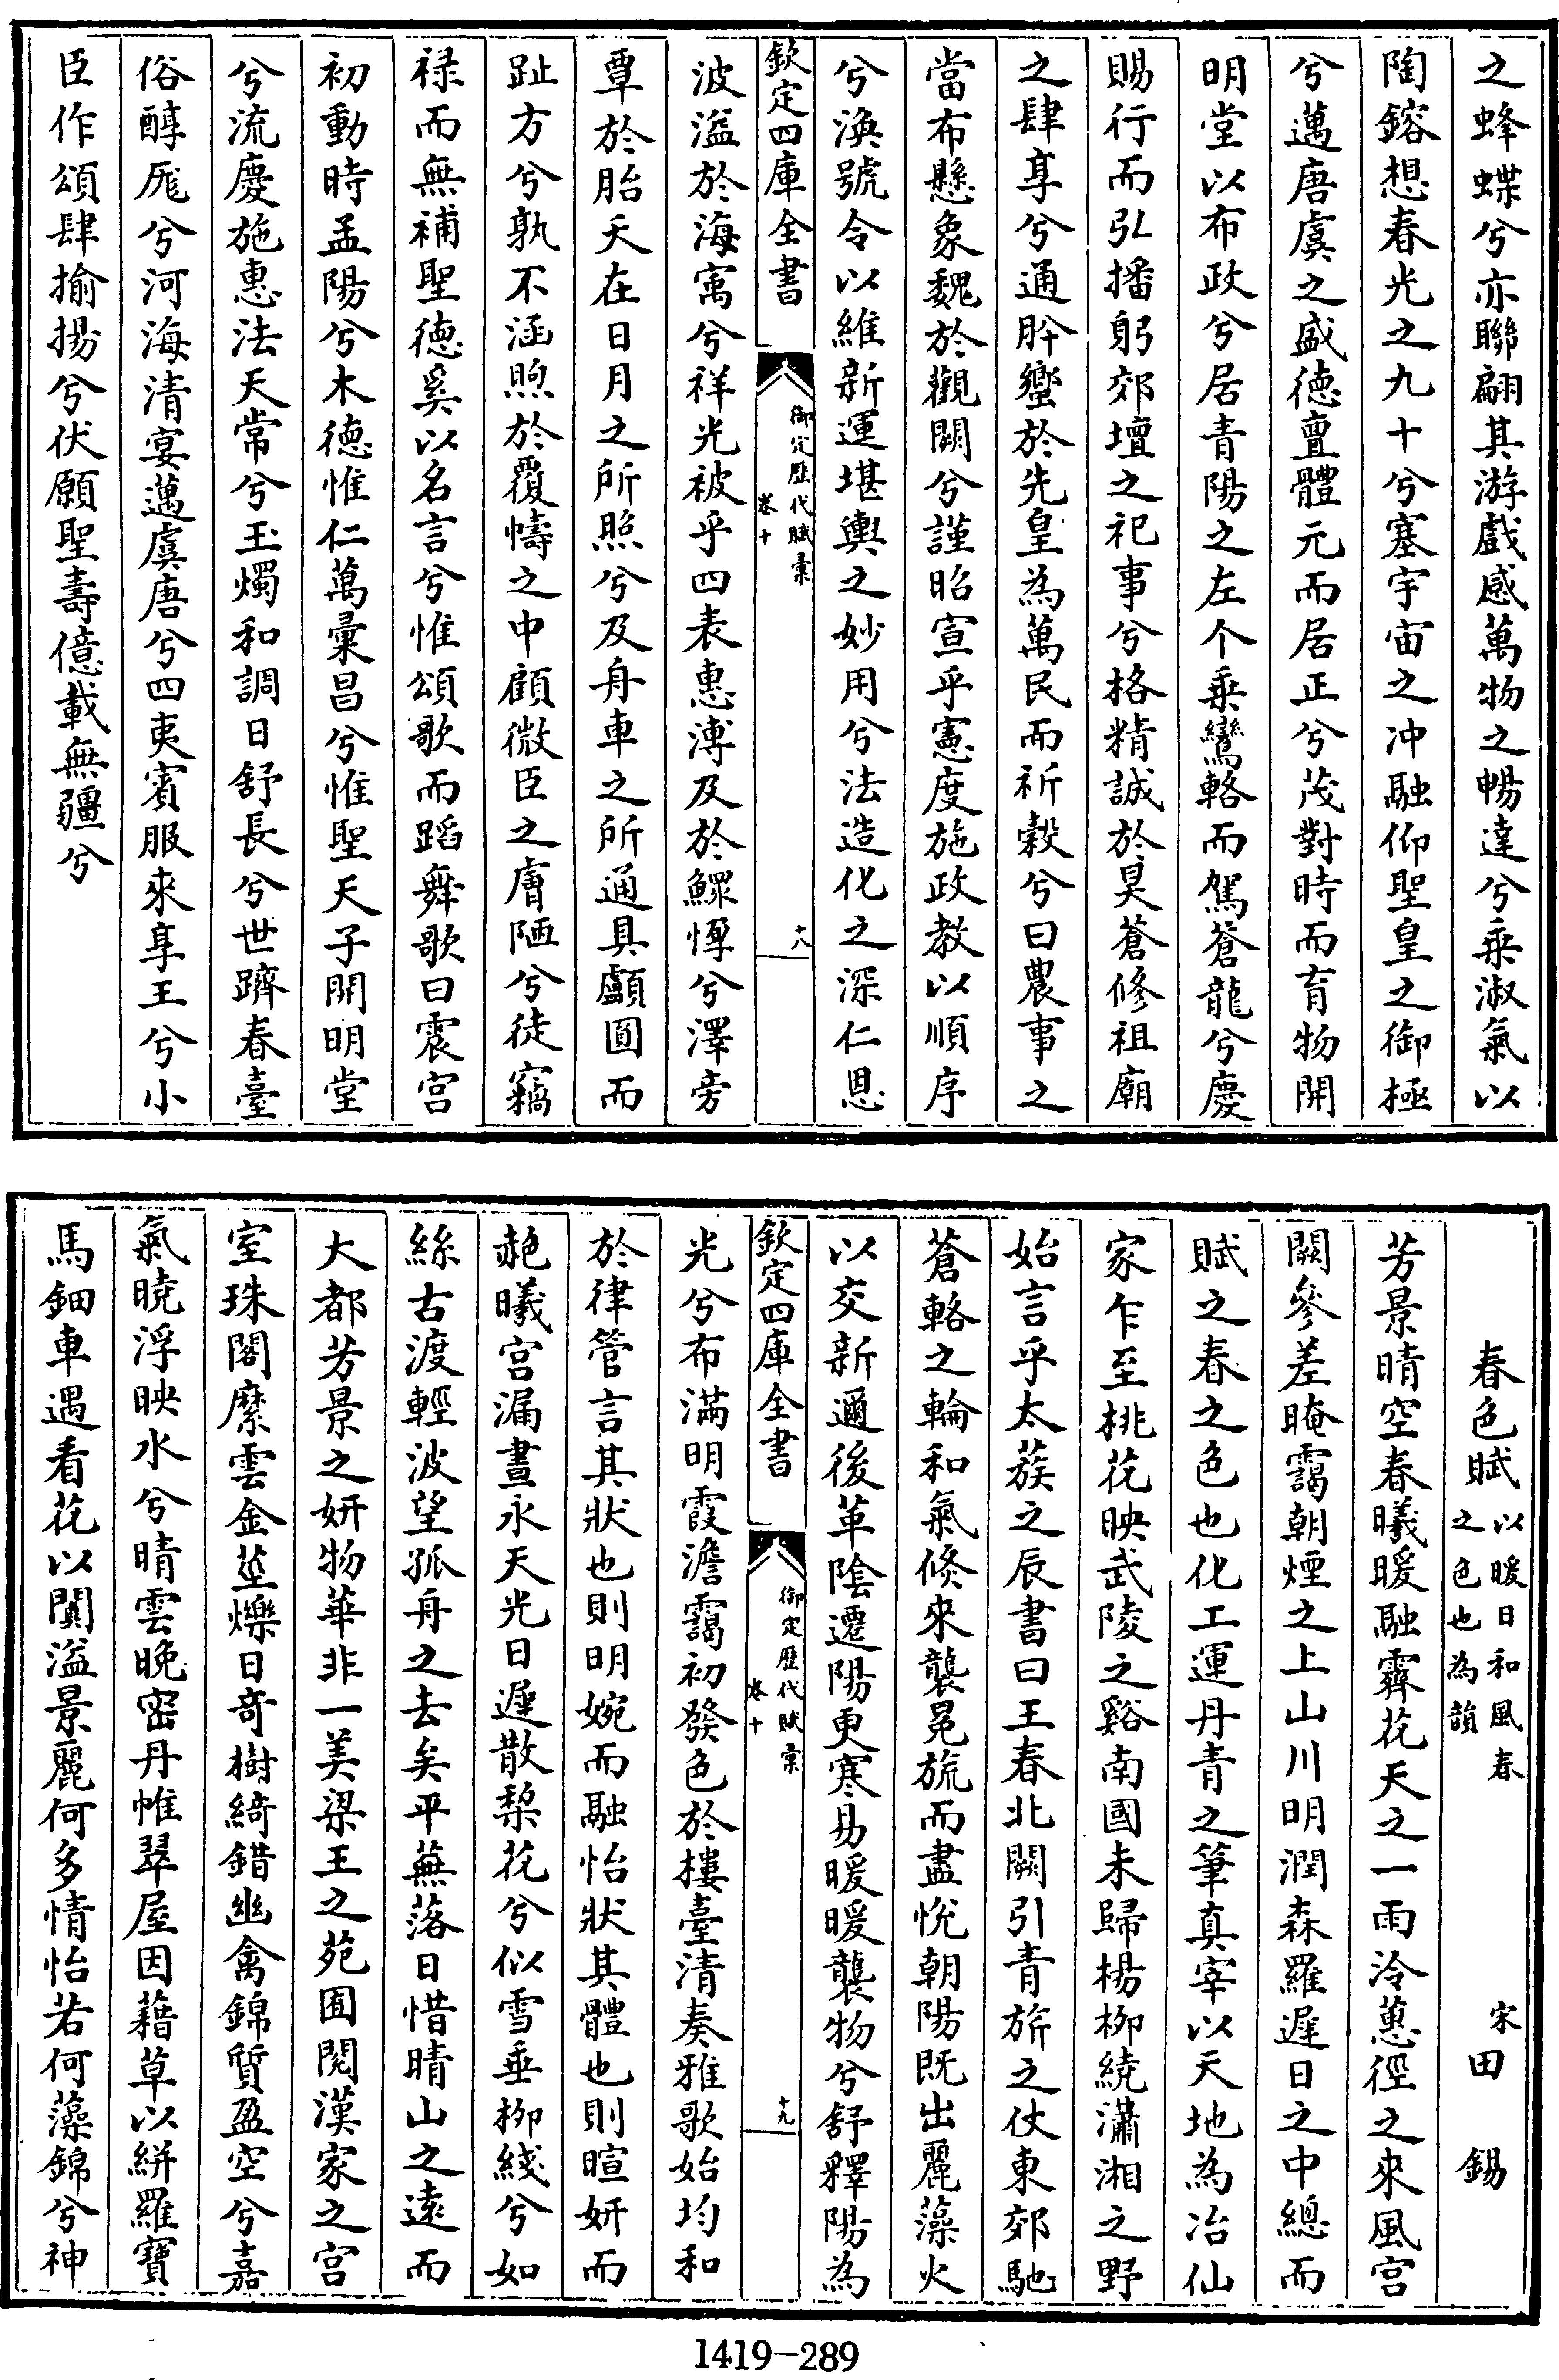 之蜂蝶兮亦聯翩其游戲感萬物之暢達兮乗淑氣以
陶鎔想春光之九十兮塞宇宙之冲融仰聖皇之御極
兮邁唐虞之盛德亶體元而居正兮茂對時而育物開
明堂以布政兮居青陽之左个乗鸞輅而駕蒼龍兮慶
賜行而弘播躬郊壇之祀事兮格精誠於昊蒼修祖廟
之肆享兮通肸蠁於先皇為萬民而祈穀兮曰農事之
當布懸象魏於觀闕兮謹昭宣乎憲度施政教以順序
兮渙號令以維新運堪輿之妙用兮法造化之深仁恩
欽定四庫全書
御定歷代賦彚
卷十
十八
波溢於海㝢兮祥光被乎四表惠溥及於鰥惸兮澤旁
覃於胎夭在日月之所照兮及舟車之所通具顱圓而
趾方兮孰不涵煦於覆幬之中顧微臣之膚陋兮徒竊
禄而無補聖德奚以名言兮惟頌歌而蹈舞歌曰震宫
初動時孟陽兮木德惟仁萬彚昌兮惟聖天子開明堂
兮流慶施惠法天常兮玉燭和調日舒長兮世躋春臺
俗醇厖兮河海清宴邁虞唐兮四夷賓服來享王兮小
臣作頌肆揄揚兮伏願聖壽億載無疆兮
春色賦以暖日和風春之色也為韻
宋田錫
芳景晴空春曦暖融霽花天之一雨泠蕙徑之來風宫
闕參差晻靄朝煙之上山川明潤森羅遲日之中總而
賦之春之色也化工運丹青之筆真宰以天地為冶仙
家乍至桃花映武陵之谿南國未歸楊柳繞瀟湘之野
始言乎太蔟之辰書曰王春北闕引青旂之仗東郊馳
蒼輅之輪和氣倏來襲冕旒而盡悅朝陽既出麗藻火
以交新邇後革陰遷陽更寒易暖暖襲物兮舒釋陽為
欽定四庫全書
御定歷代賦彚
卷十
十九
光兮布滿明霞澹靄初發色於樓臺清奏雅歌始均和
於律管言其狀也則明婉而融怡狀其體也則暄妍而
赩曦宫漏晝永天光日遲散棃花兮似雪垂栁綫兮如
絲古渡輕波望孤舟之去矣平蕪落日惜晴山之遠而
大都芳景之妍物華非一美梁王之苑囿閱漢家之宫
室珠閣縻雲金莖爍日竒樹綺錯幽禽錦質盈空兮嘉
氣曉浮映水兮晴雲晚密丹帷翠屋因藉草以絣羅寶
馬鈿車遇看花以闐溢景麗何多情怡若何藻錦兮神
1419-289